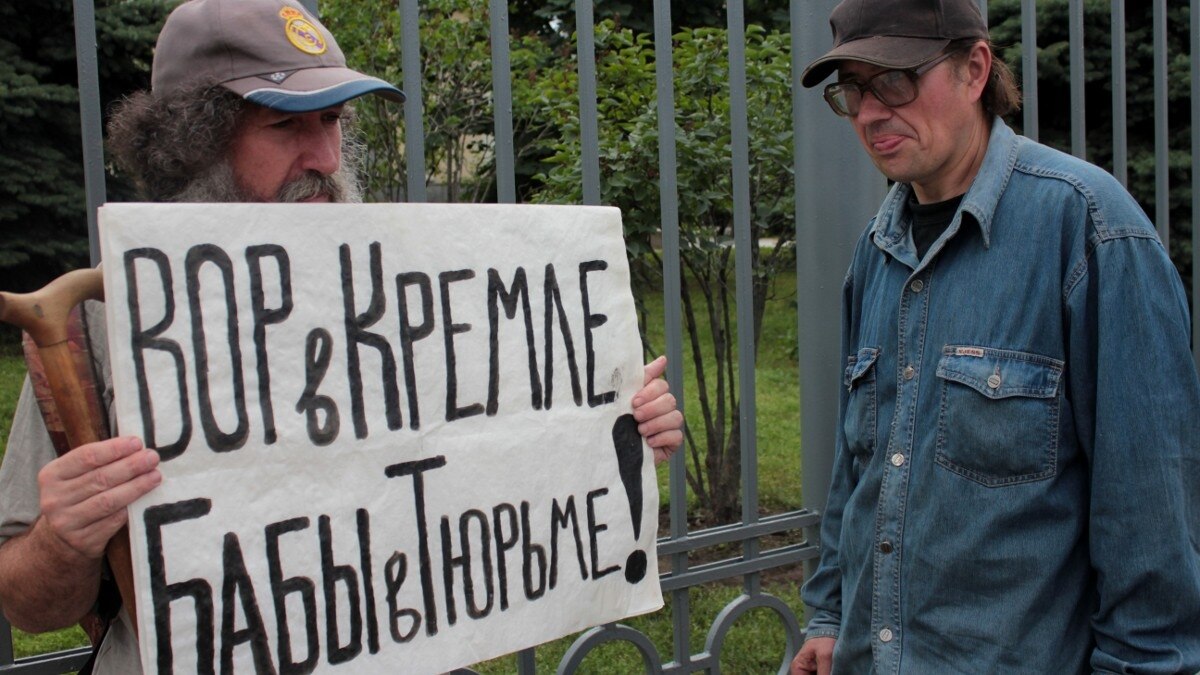 ВОР в КРЕМЛЕ
БАБЫ в ТЮРЬМЕ!